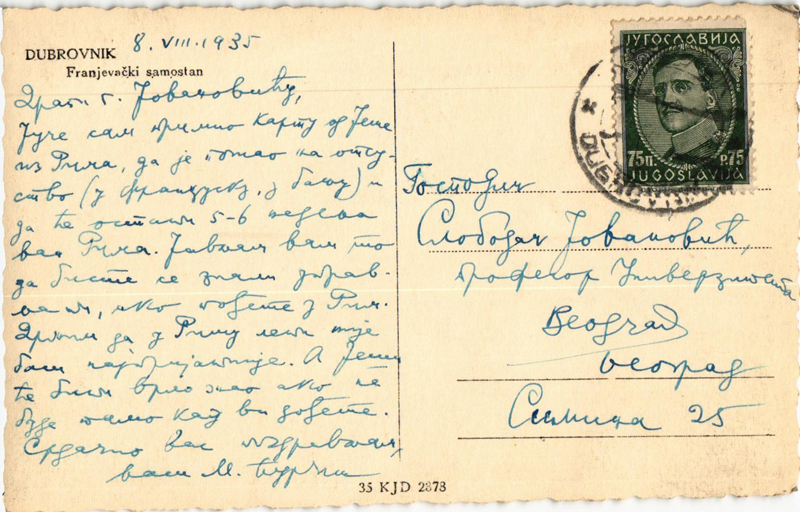 DUBROVNIK 8. VIII. 1935
Franjevački samostan
Драги г. Јовановићу,
Јуче сам примио карту од Јеше
из Рима, да је пошао на отсу-
ство (у Француску, у бању) и
да ће остати 5-6 недеља
ван Рима. Јављам вам то
да бисте се знали управ-
љати, ако пођете у Рим.
да у Риму лети није
баш најпријатније. А Јеши
ће бити врло жао ако не
буде тамо кад ви дођете.
Срдачно вас поздравља,
ваш М. Ћурчин
ЈУГОСЛАВИЈА
75п. P.75
JUGOSLAVIJA
DUBROVNIK
Господин
Слободан Јовановић,
професор Универзитета
Beograd
Београд
Симина 25
35 KJD 2378